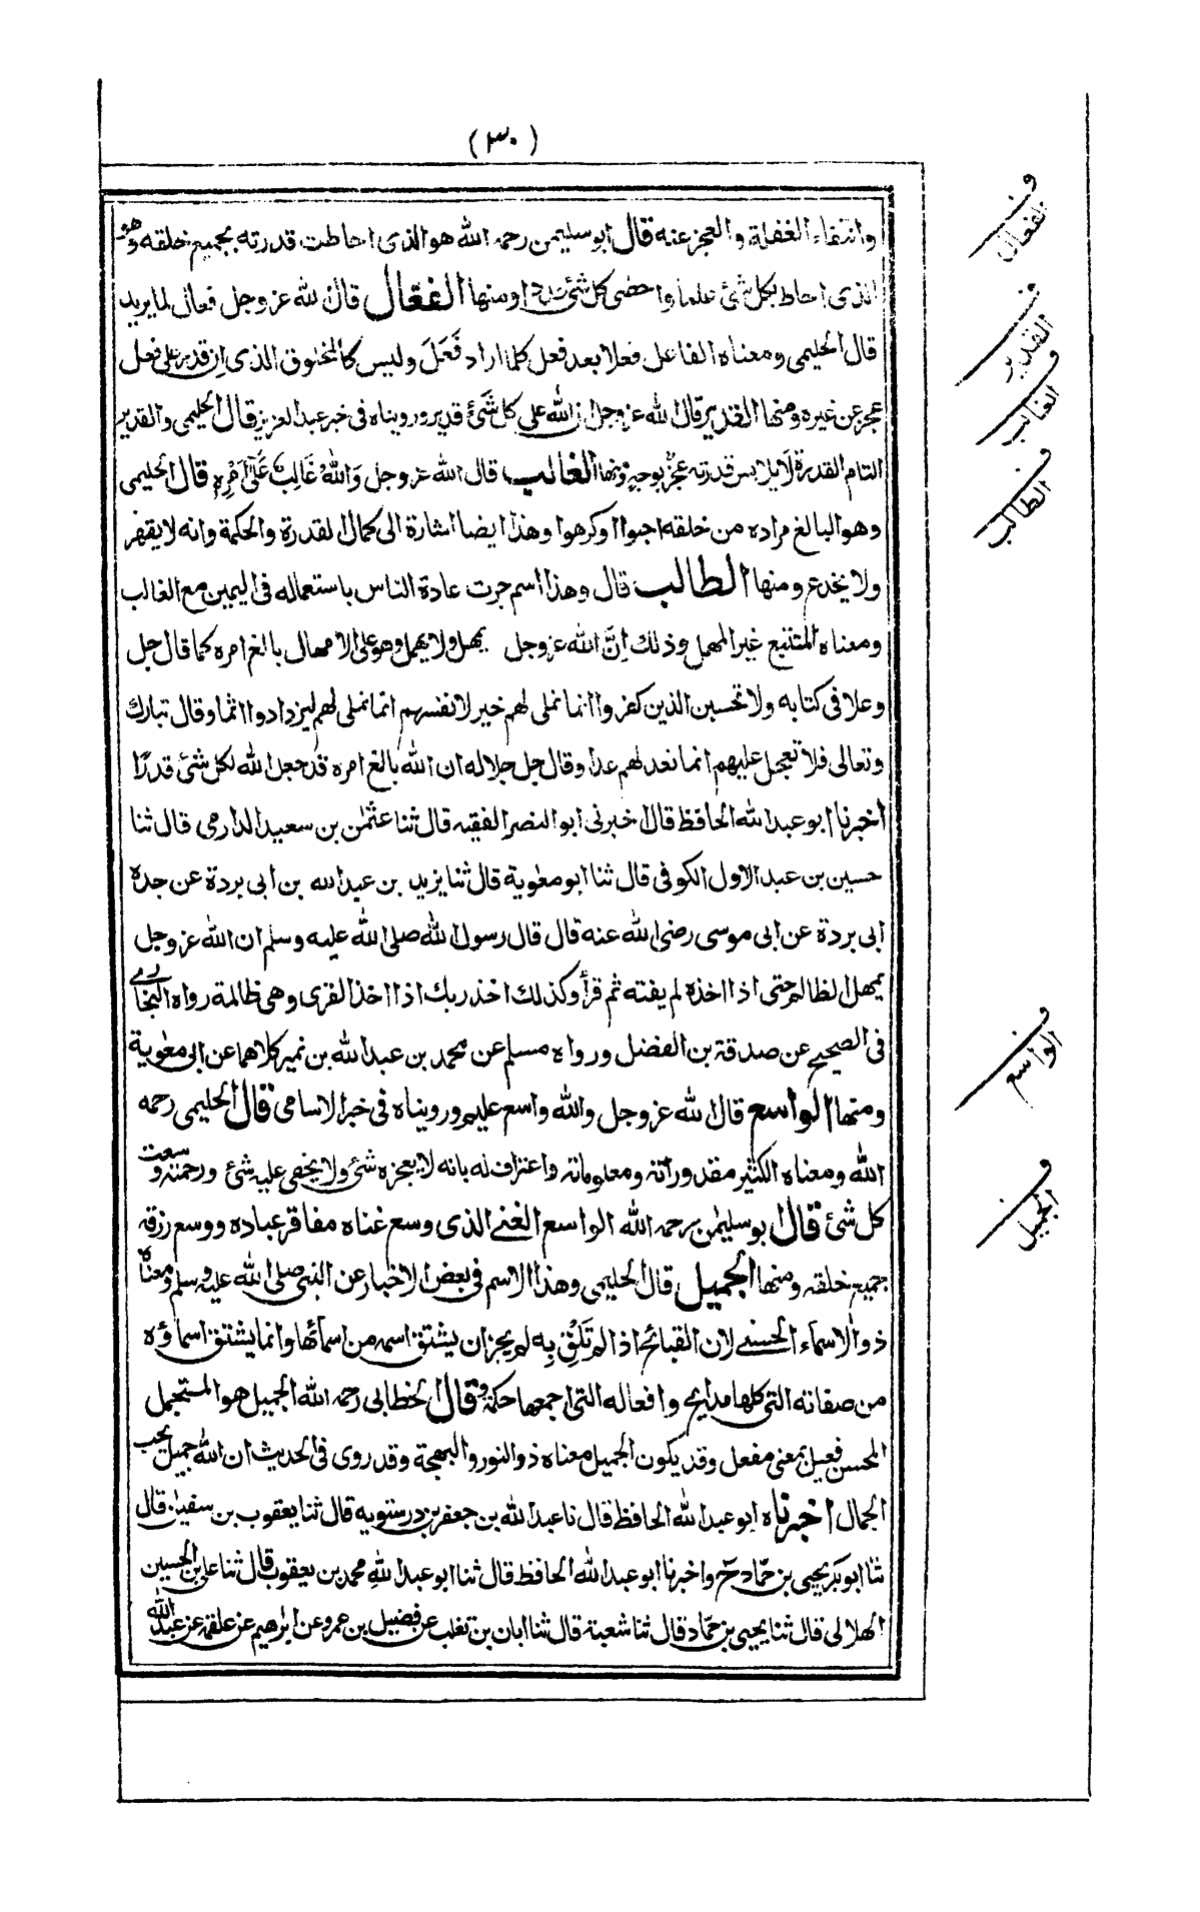 (٣٠)
وانتفاء الغفلة والعجز عنه قال ابو سليمن رحمه الله هو الذى احاطت قدرته بجميع خلقه وهو
الذى احاط بكل شئ علما واحصى كل شئ عددا ومنها الفعّال قال الله عز وجل فعال لما يريد
قال الحليمى ومعناه الفاعل فعلا بعد فعل كلما اراد فَعَلَ وليس كالمخلوق الذى ان قدر على فعل
عجز عن غيره ومنها القدير قال الله عز وجل ان الله على كل شَئ قدير وروبناه فى خبر عبد العزيز قال الحليمى والقدير
التام القدرة لا يلابس قدرته عجز بوجه ومنها الغالب قال الله عز وجل وَاللهُ غَالِبٌ عَلىٰ اَمْرِهٖ قال الحليمى
وهو البالغ مراده من خلقه احبوا او كرهوا وهذا ايضا اشارة الى كمال القدرة والحكمة وانه لا يقهر
ولا يخدع ومنها الطالب قال وهذا اسم جرت عادة الناس باستعماله فى اليمين مع الغالب
ومعناه المتتبع غير المهمل وذلك اِنَّ الله عز وجل يمهل ولا يهمل وهو على الامهال بالغ امره كما قال جل
وعلا فى كتابه ولا تحسبن الذين كفروا انما نملى لهم خير لانفسهم انما نملى لهم ليزدادوا اثما وقال تبارك
وتعالى فلا تعجل عليهم انما نعد لهم عدا وقال جل جلاله ان الله بالغ امره قد جعل الله لكل شئ قدرًا
اخبرنا ابو عبد الله الحافظ قال اخبرنى ابو النضر الفقيه قال ثنا عثمٰن بن سعيد الدارمى قال ثنا
حسين بن عبد الاول الكوفى قال ثنا ابو معٰوية قال ثنا يزيد بن عبد الله بن ابى بردة عن جده
ابى بردة عن ابى موسى رضى الله عنه قال قال رسول الله صلى الله عليه وسلم ان الله عز وجل
يمهل الظالم حتى اذا اخذه لم يفته ثم قرأ وكذلك اخذ ربك اذا اخذ القرى وهى ظالمة رواه البخارى
فى الصحيح عن صدقة بن الفضل ورواه مسلم عن محمد بن عبد الله بن نمير كلاهما عن ابى معٰوية
ومنها الواسع قال الله عز وجل والله واسع عليم وروبناه فى خبر الاسامى قال الحليمى رحمه
الله ومعناه الكثير مقدوراته ومعلوماته واعتراف له بانه لا يعجزه شئ ولا يخفى عليه شئ ورحمته وسعت
كل شئ قال ابو سليمٰن رحمه الله الواسع الغنى الذى وسع غناه مفاقر عباده ووسع رزقه
جميع خلقه ومنها الجميل قال الحليمى وهذا الاسم فى بعض الاخبار عن النبى صلى الله عليه وسلم ومعناه
ذو الاسماء الحسنى لان القبائح اذا لم تَلِقْ بِه لم يجز ان يشتق اسمه من اسمائها وانما يشتق اسماؤه
من صفاته التى كلها مدايح وافعاله التى اجمعها حكمة وقال الخطابى رحمه الله الجميل هو المستجمل
المحسن فعيل بمعنى مفعل وقد يكون الجميل معناه ذو النور والبهجة وقد روى فى الحديث ان الله جميل يحب
الجمال اخبرناه ابو عبد الله الحافظ قال نا عبد الله بن جعفر بن درستويه قال ثنا يعقوب بن سفيٰن قال
ثنا ابو بكر يحيى بن حمّاد ح واخبرنا ابو عبد الله الحافظ قال ثنا ابو عبد اللهِ محمد بن يعقوب قال ثنا على بن الحسين
الهلالى قال ثنا يحيى بن حمّاد قال ثنا شعبة قال ثنا ابان بن تغلب عن فضيل بن عمرو عن ابرٰهيم عن علقمة عن عبد الله
الفعال
القدير
الغالب
الطالب
الواسع
الجميل